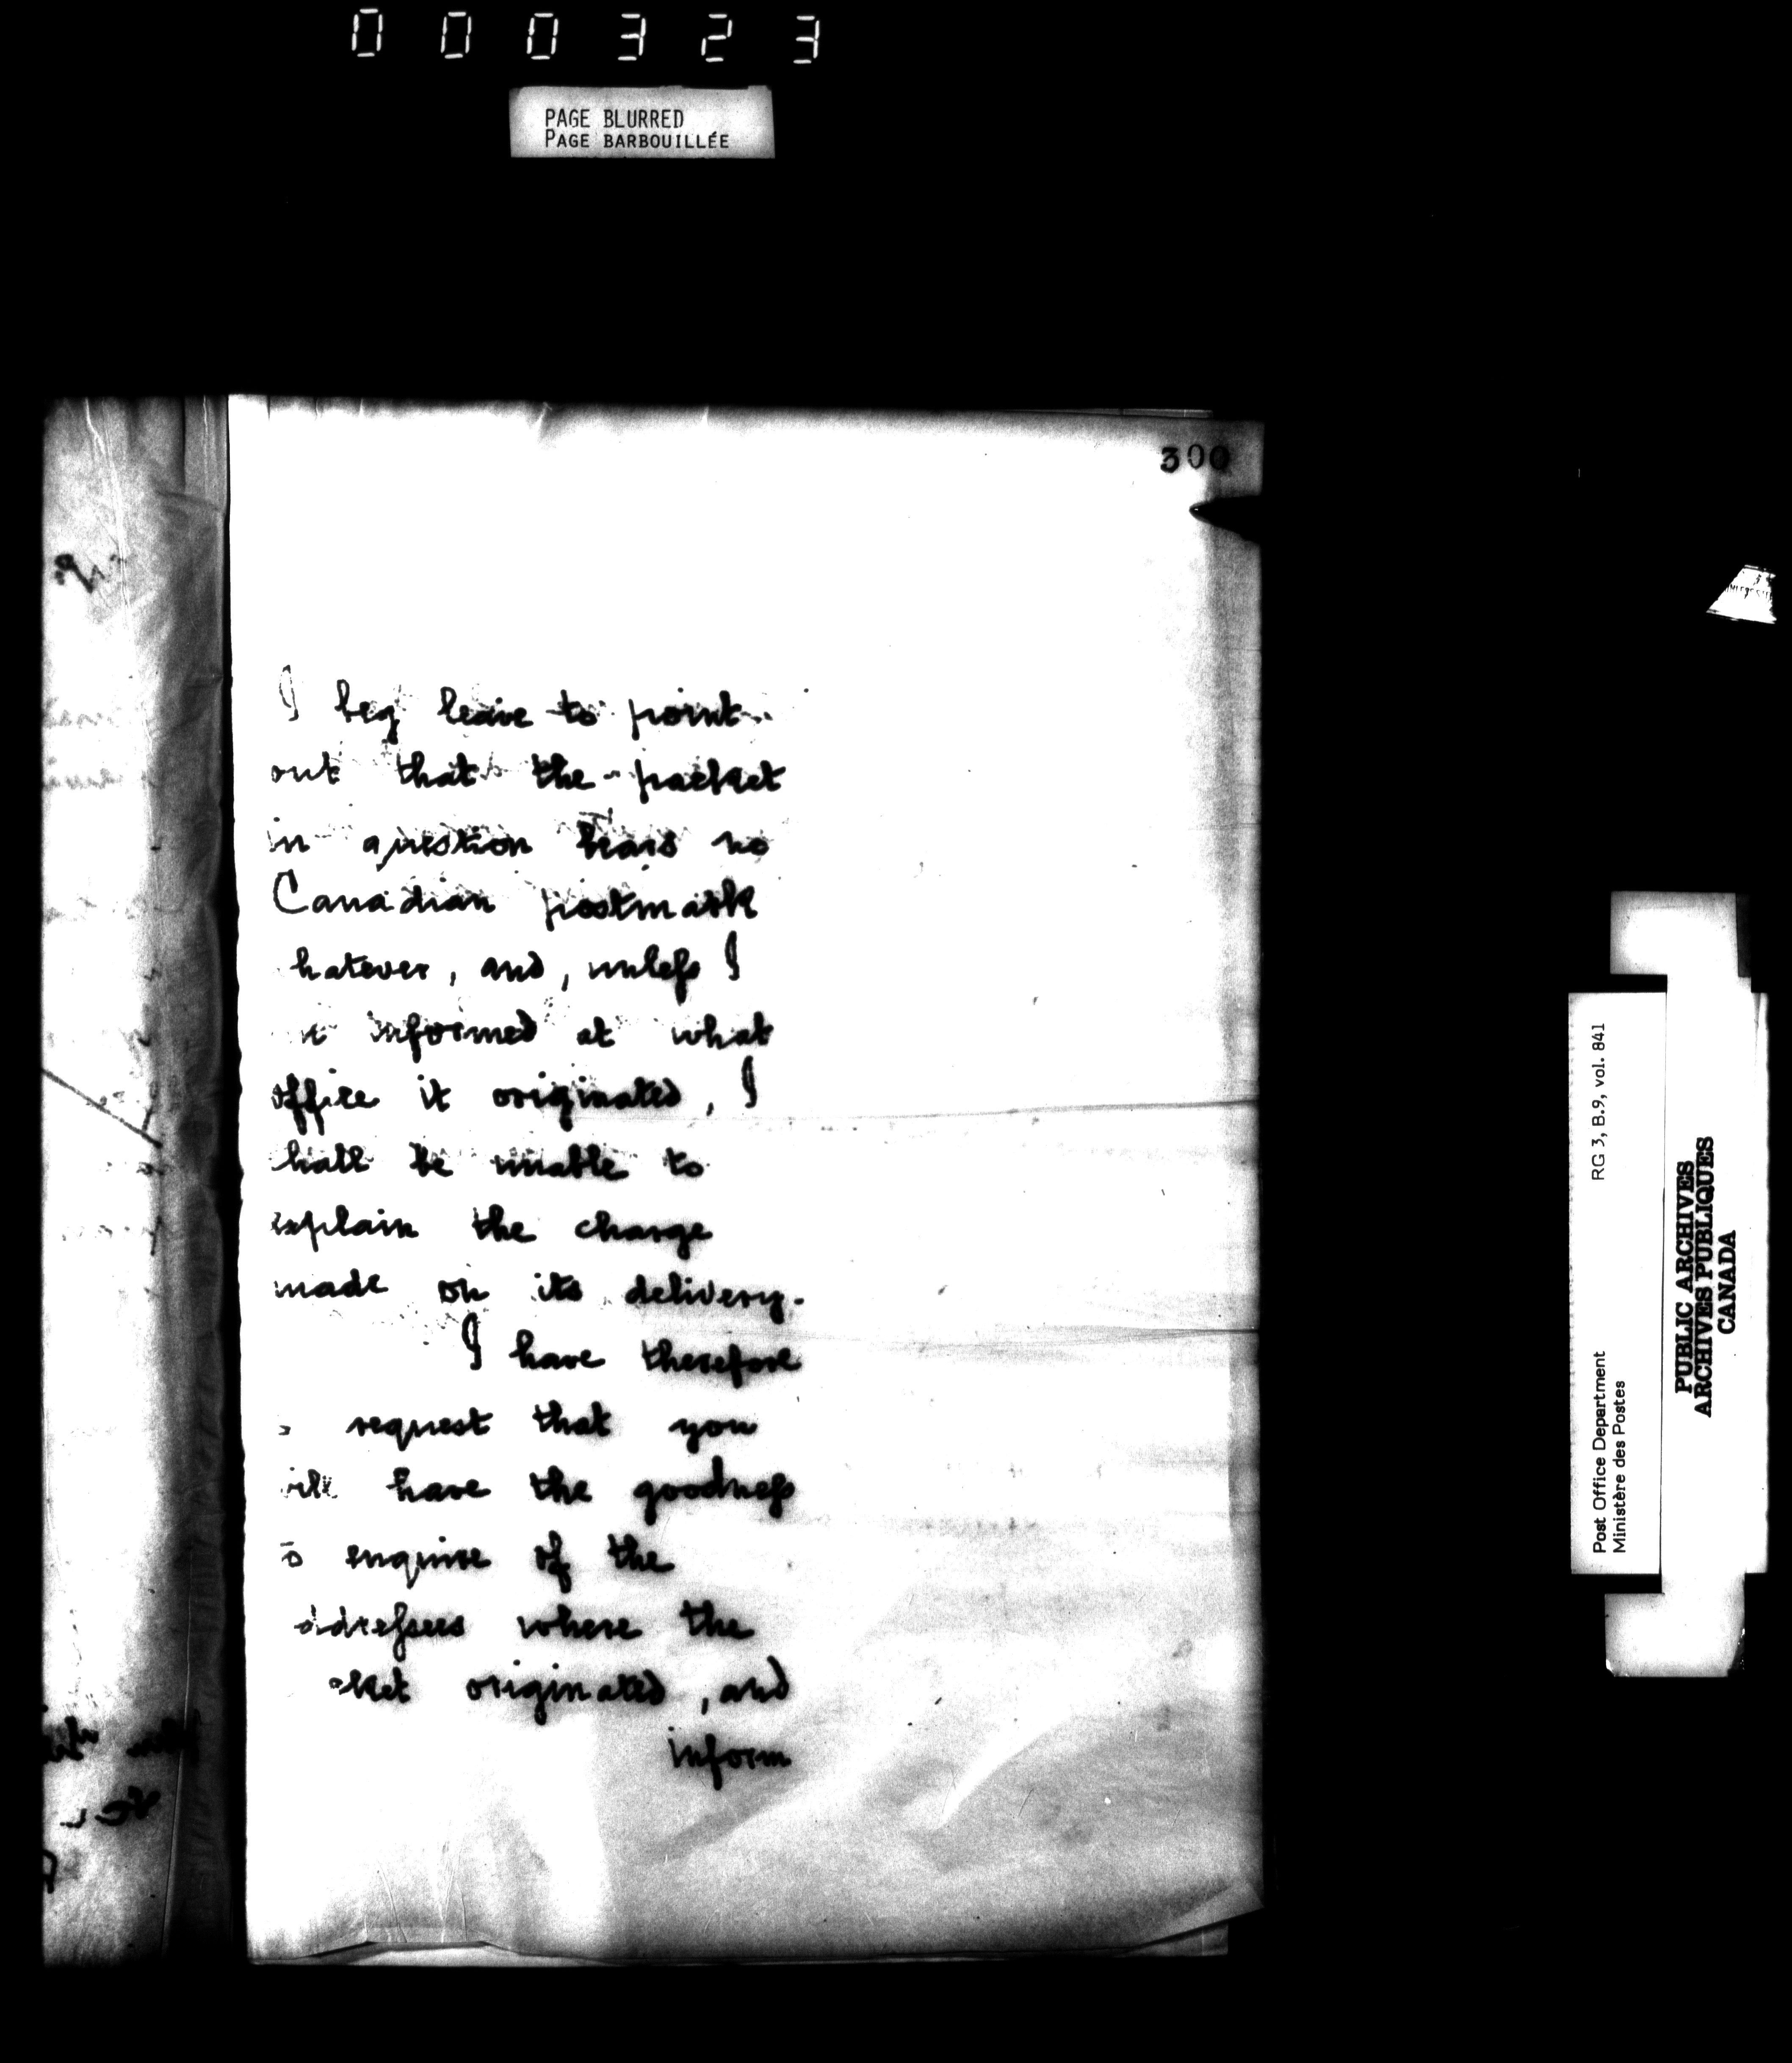 000323
PAGE BLURRED
PAGE BARBOUILLÉE
300
I beg leave to point
out that the packet
in question bears no
Canadian postmark
hatever, and, unless I
informed at what
office it originated, I
hall be unable to
explain the charge
made on its delivery.
I have therefore
request that you
ill have the goodness
o enquire of the
ddressees where the
cket originated, and
inform
RG 3, B.9, vol. 841
Post Office Department
Ministère des Postes
PUBLIC ARCHIVES
ARCHIVES PUBLIQUES
CANADA